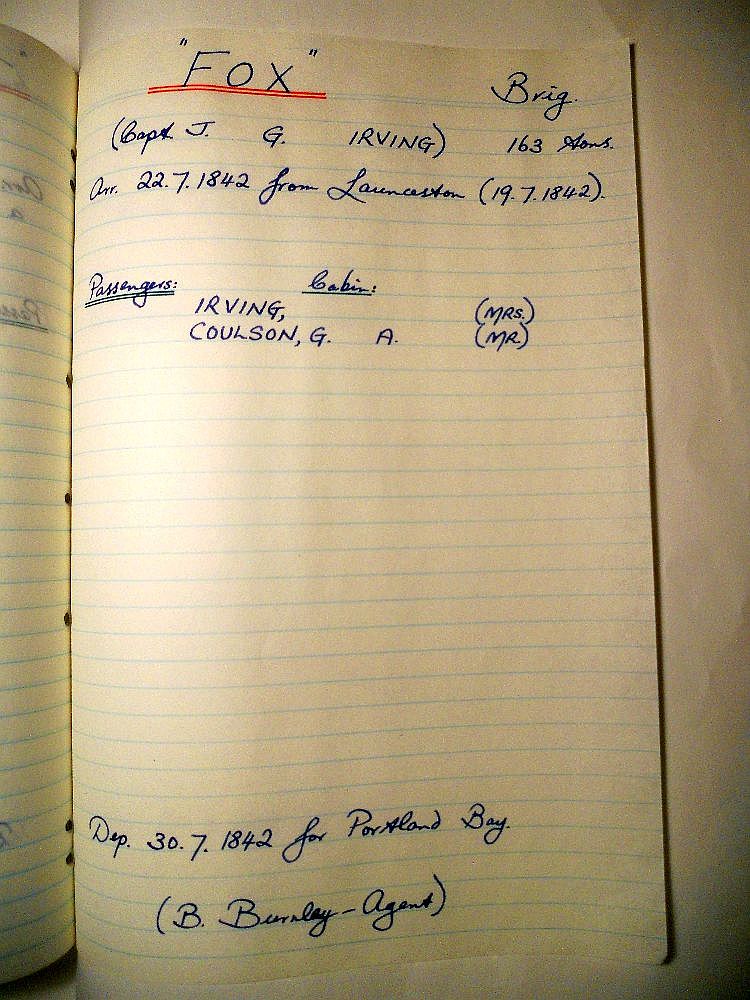 "FOX" Brig.
(Capt. J. G. IRVING) 163 tons.
Arr. 22.7.1842 from Launceston (19.7.1842).
Passengers: Cabin:
IRVING, (MRS.)
COULSON, G. A. (MR.)
Dep. 30.7.1842 for Portland Bay.
(B. Burnley - Agent)